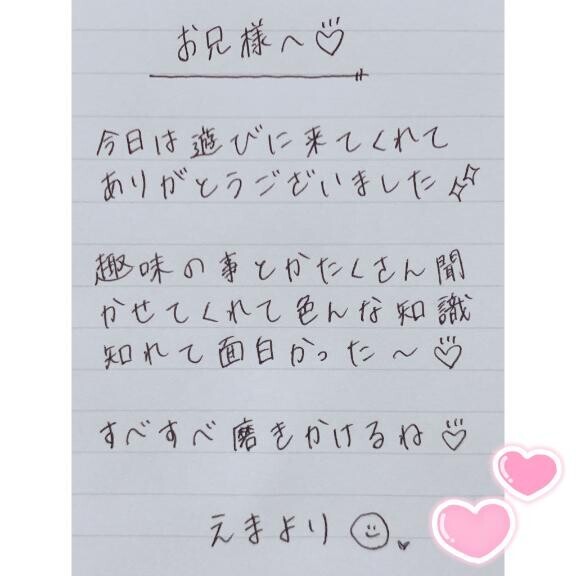 お兄様へ♡
今日は遊びに来てくれて
ありがとうございました
趣味の事とかたくさん聞
かせてくれて色んな知識
知れて面白かった〜♡
すべすべ磨きかけるね♡
えまより